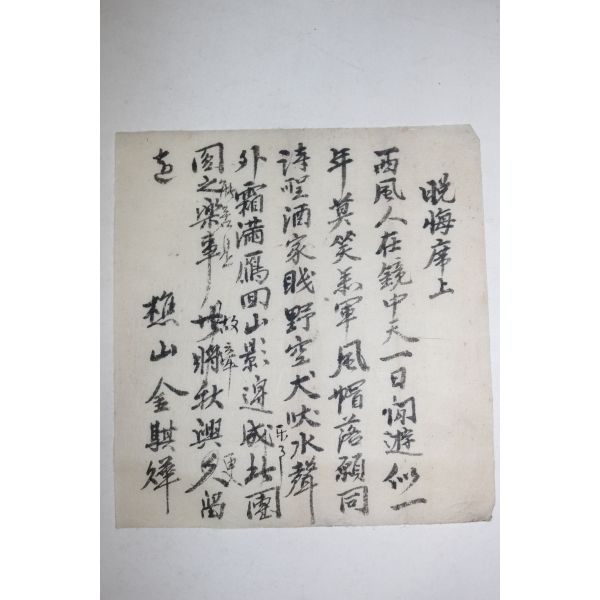 晩悔席上
西風人在鏡中天一日閒遊似一
年莫笑參軍風帽落願同
詩聖酒家眠野空犬吠水聲
外霜滿鴈回山影邊成此團
圓之樂事 將秋興久留
樵山金騏燁